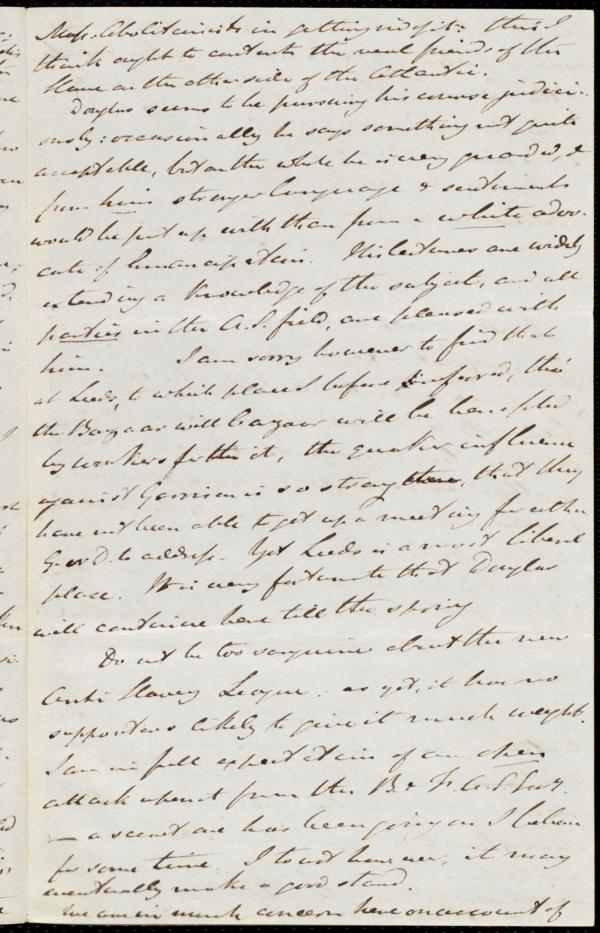 Mass. Abolitionists in getting rid of it: this I
think ought to content the real friends of the
Slave on the other side of the Atlantic.
Douglas seems to be pursuing his course judici-
ously: occasionally he says something not quite
acceptable, but on the whole he is very guarded, &
from him stronger language & sentiments
would be put up with than from a white advo-
cate of Emancipation. His lectures are widely
extending a knowledge of the subject, and all
parties in the A.S. field, are pleased with
him. I am sorry however to find that
at Leeds, to which place I before referred, tho'
the Bazaar will be
by workers for it, the quaker influence
against Garrison is so strong there, that they
have not been able to get up a meeting for either
G. or D. to address. Yet Leeds is a most liberal
place. It is very fortunate that Douglas
will continue here till the spring
Do not be too sanguine about the new
Anti Slavery League: as yet, it has no
supporters likely to give it much weight.
I am in full expectation of an open
attack upon it from the B & F. A. S. Socy.
— a secret one has been going on I believe
for some time. I trust however, it may
eventually make a good stand.
We are in much concern here on account of